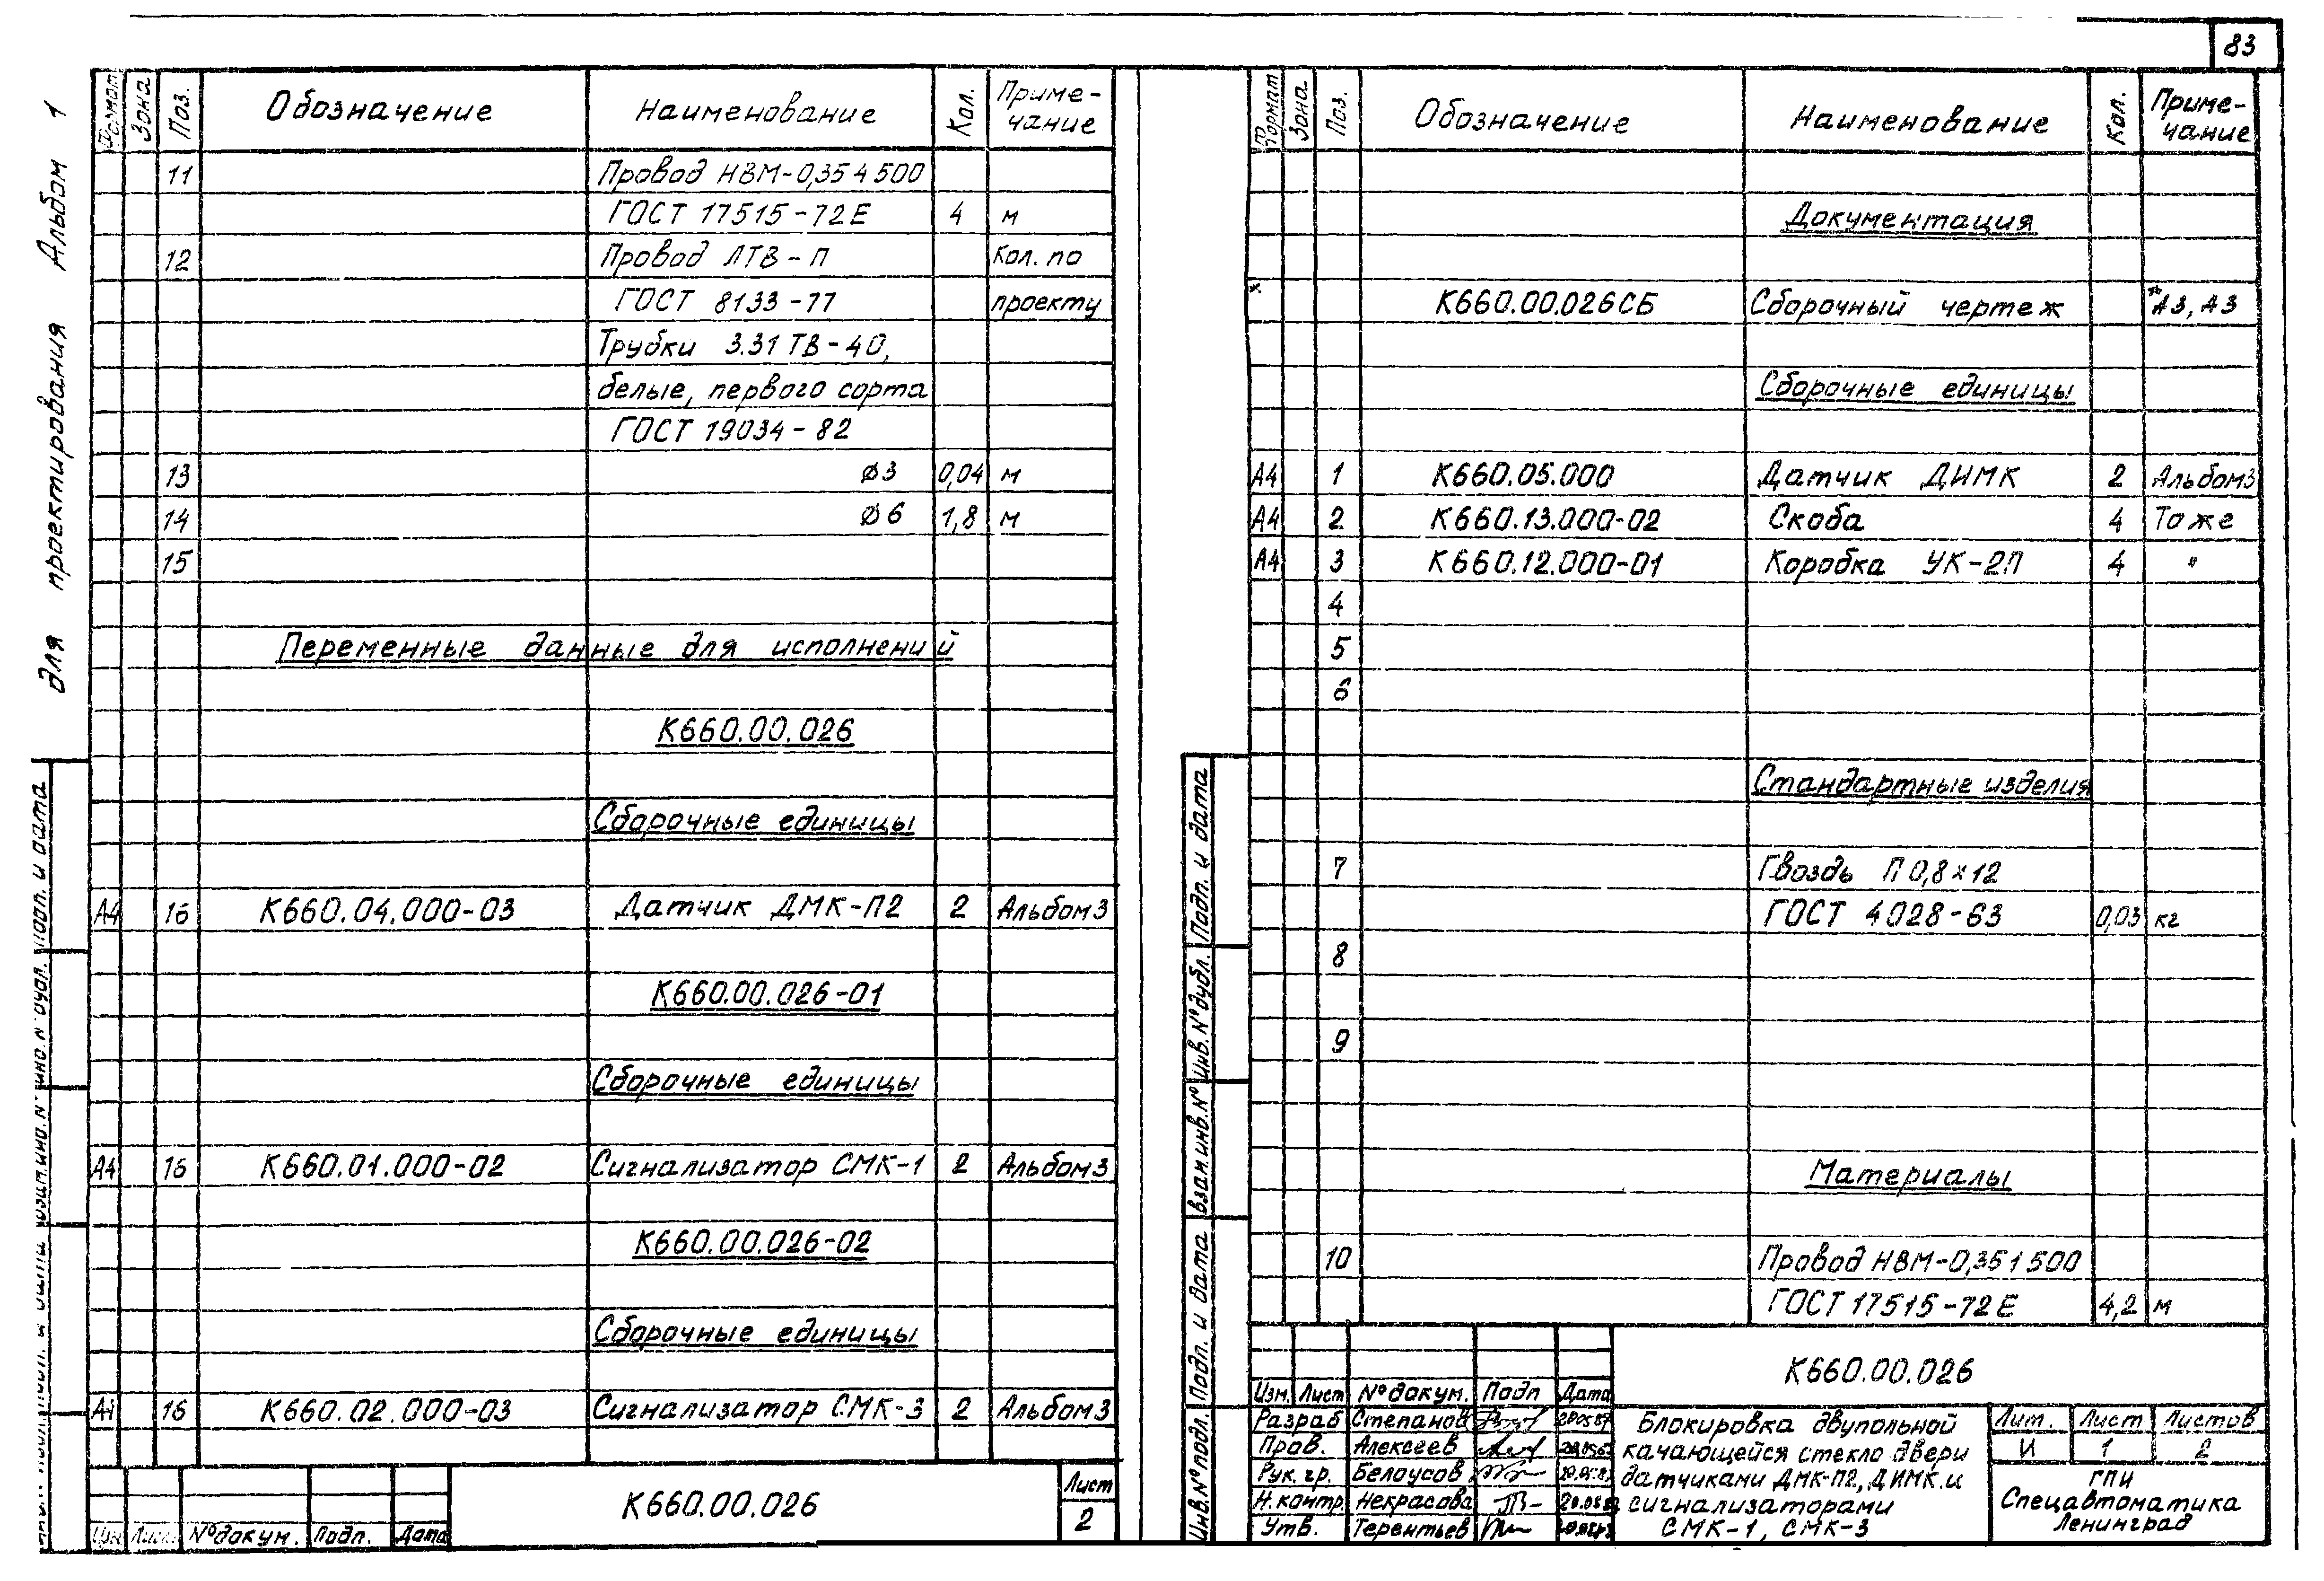 83
для проектирования Альбом 1
Формат Зона Поз. Обозначение Наименование Кол. Приме-
чание
11 Провод НВМ-0,35 4 500
ГОСТ 17515-72Е 4 м
12 Провод ЛТВ-П Кол. по
ГОСТ 8133-77 проекту
Трубки 3.31 ТВ-40,
белые, первого сорта
ГОСТ 19034-82
13 ø3 0,04 м
14 ø6 1,8 м
15
Переменные данные для исполнений
К660.00.026
Сборочные единицы
А4 16 К660.04.000-03 Датчик ДМК-П2 2 Альбом 3
К660.00.026-01
Сборочные единицы
А4 16 К660.01.000-02 Сигнализатор СМК-1 2 Альбом 3
К660.00.026-02
Сборочные единицы
А4 16 К660.02.000-03 Сигнализатор СМК-3 2 Альбом 3
К660.00.026
Лист
2
№ докум. Подп. Дата
Формат Зона Поз. Обозначение Наименование Кол. Приме-
чание
Документация
* К660.00.026СБ Сборочный чертеж *А3, А3
Сборочные единицы
А4 1 К660.05.000 Датчик ДИМК 2 Альбом 3
А4 2 К660.13.000-02 Скоба 4 То же
А4 3 К660.12.000-01 Коробка УК-2П 4 "
4
5
6
Стандартные изделия
7 Гвоздь П 0,8×12
ГОСТ 4028-63 0,03 кг
8
9
Материалы
10 Провод НВМ-0,35 1 500
ГОСТ 17515-72Е 4,2 м
Инв. № подл. Подп. и дата Взам. инв. № Инв. № дубл. Подп. и дата
К660.00.026
Изм. Лист № докум. Подп Дата
Разраб Степанов
Пров. Алексеев
Рук. гр. Белоусов
Н. контр. Некрасова
Утв. Терентьев
Блокировка двупольной
качающейся стекло двери
датчиками ДМК-П2, ДИМК и
сигнализаторами
СМК-1, СМК-3
Лит. Лист Листов
И 1 2
ГПИ
Спецавтоматика
Ленинград